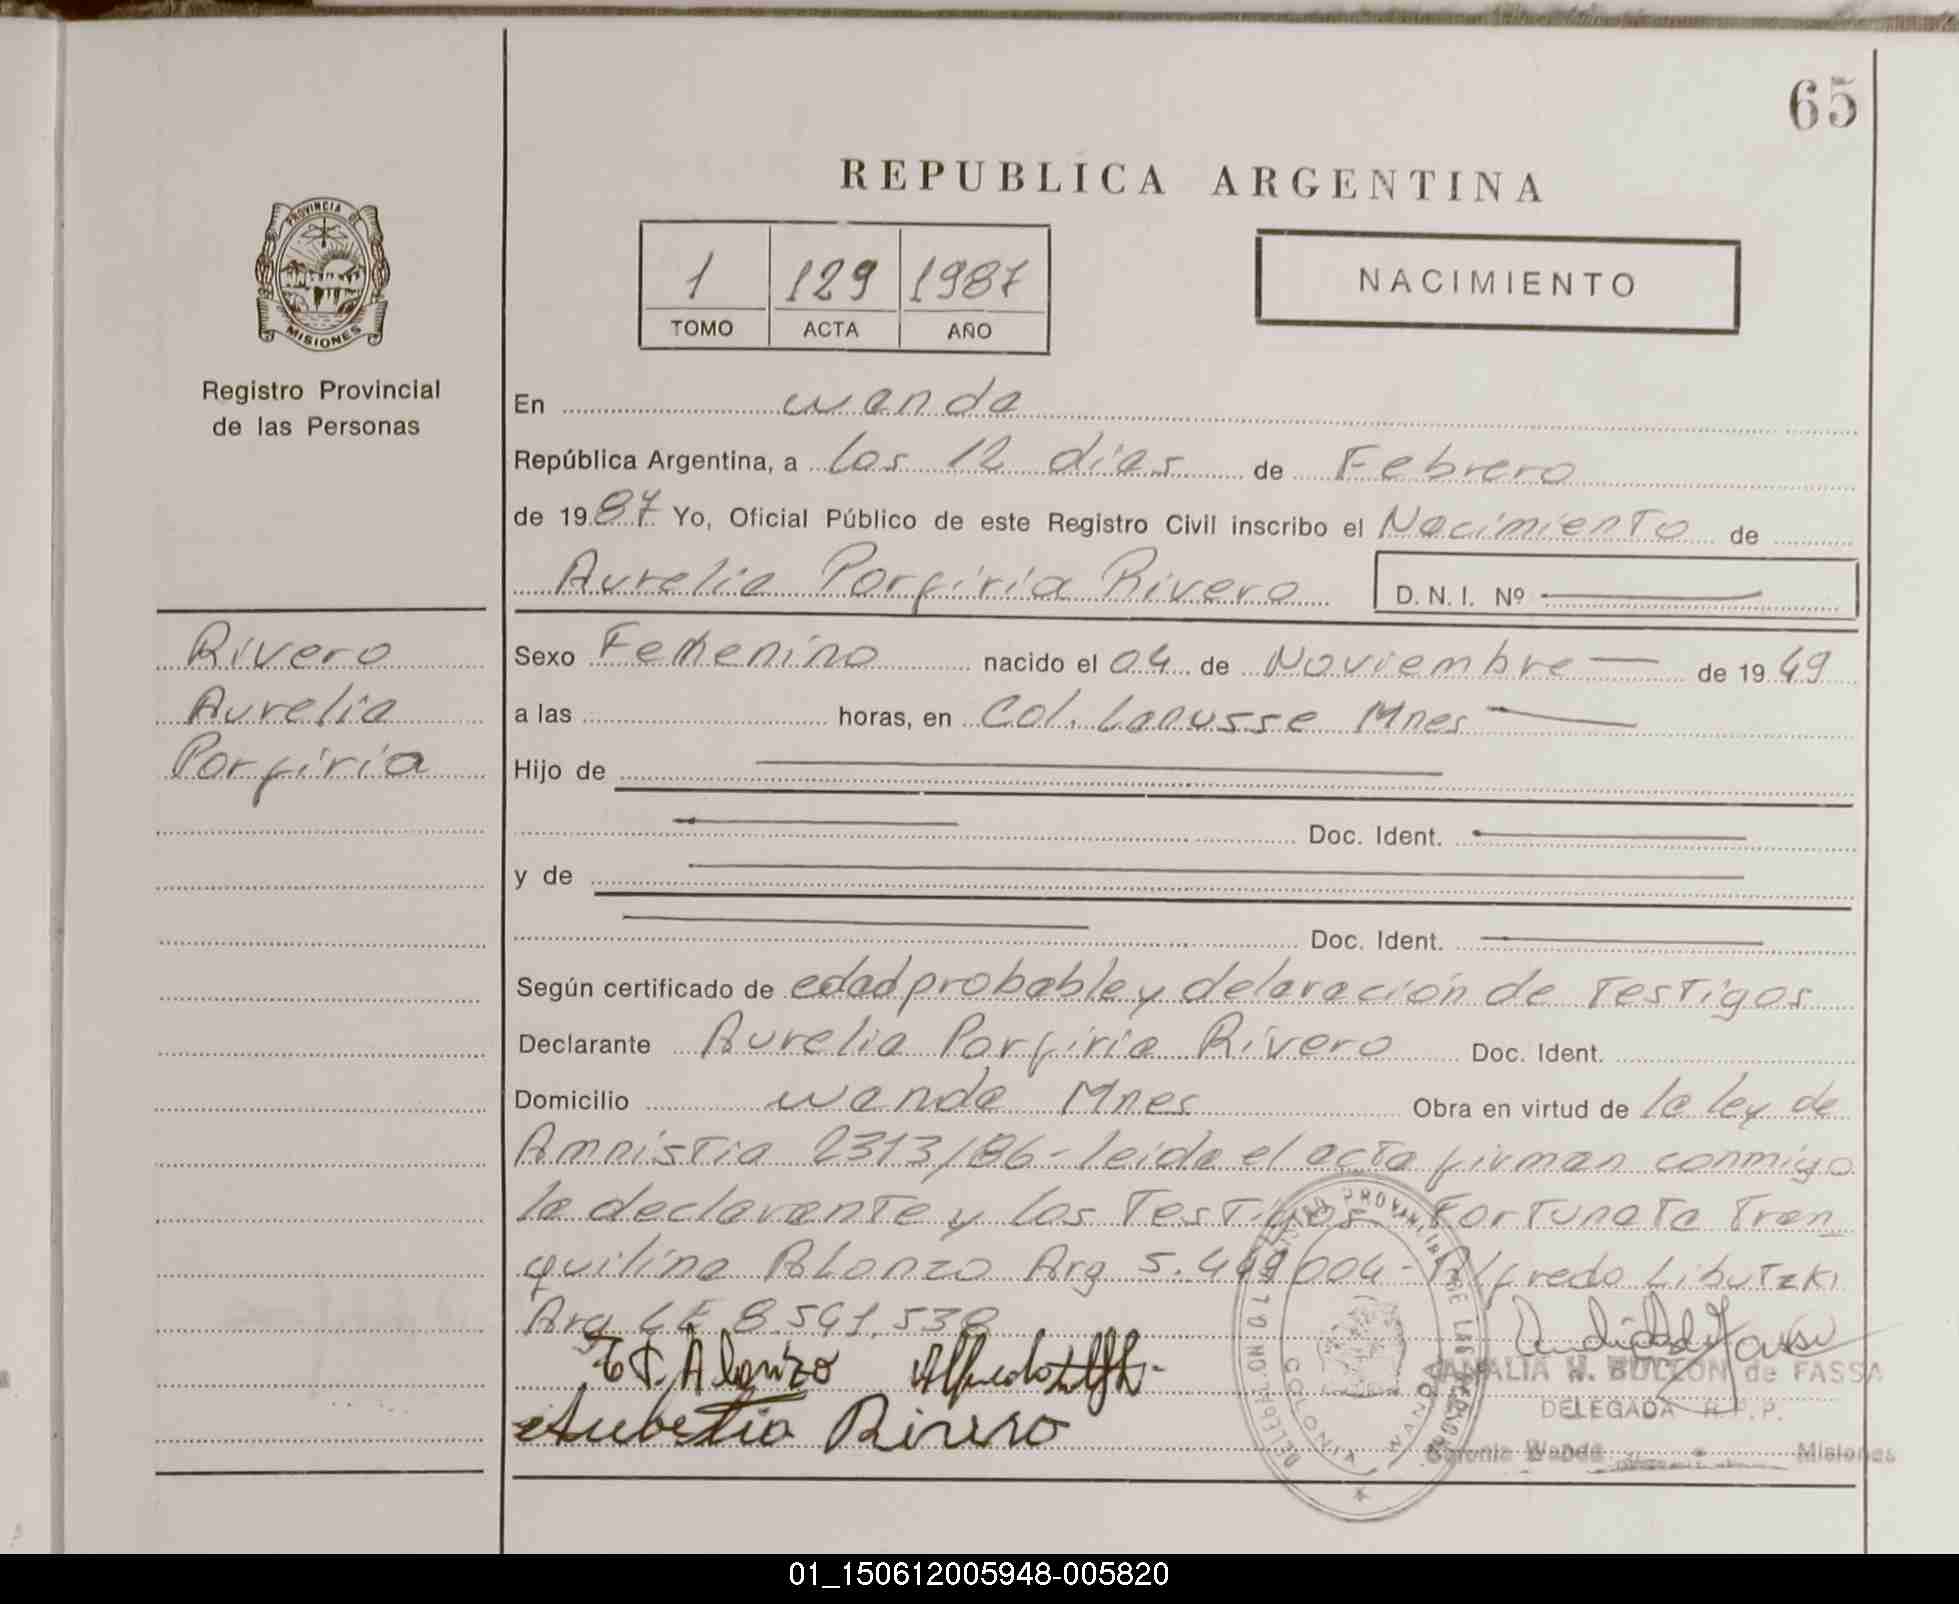 65
REPUBLICA ARGENTINA
PROVINCIA DE
MISIONES
Registro Provincial
de las Personas
1 129 1987
TOMO ACTA AÑO
NACIMIENTO
En wanda
República Argentina, a los 12 días de Febrero
de 1987 Yo, Oficial Público de este Registro Civil inscribo el Nacimiento de
Aurelia Porfiria Rivero D. N. I. Nº
Rivero
Aurelia
Porfiria
Sexo Femenino nacido el 04 de Noviembre de 1949
a las horas, en Col. Lanusse Mnes
Hijo de
Doc. Ident.
y de
Doc. Ident.
Según certificado de edad probable y delaración de Testigos
Declarante Aurelia Porfiria Rivero Doc. Ident.
Domicilio wanda Mnes Obra en virtud de la ley de
Amnistia 2313/86- leida el acta firman conmigo
la declarante y los Testigos Fortunata Tran
quilina Alonzo Arg 5.449004- Alfredo Libutzki
Arg LE 8.591.538
F T. Alonzo Alfredo
Rivero
COLONIA WANDA
AMALIA N. de FASSA
DELEGADA R.P.P.
Colonia Wanda Misiones
01_150612005948-005820